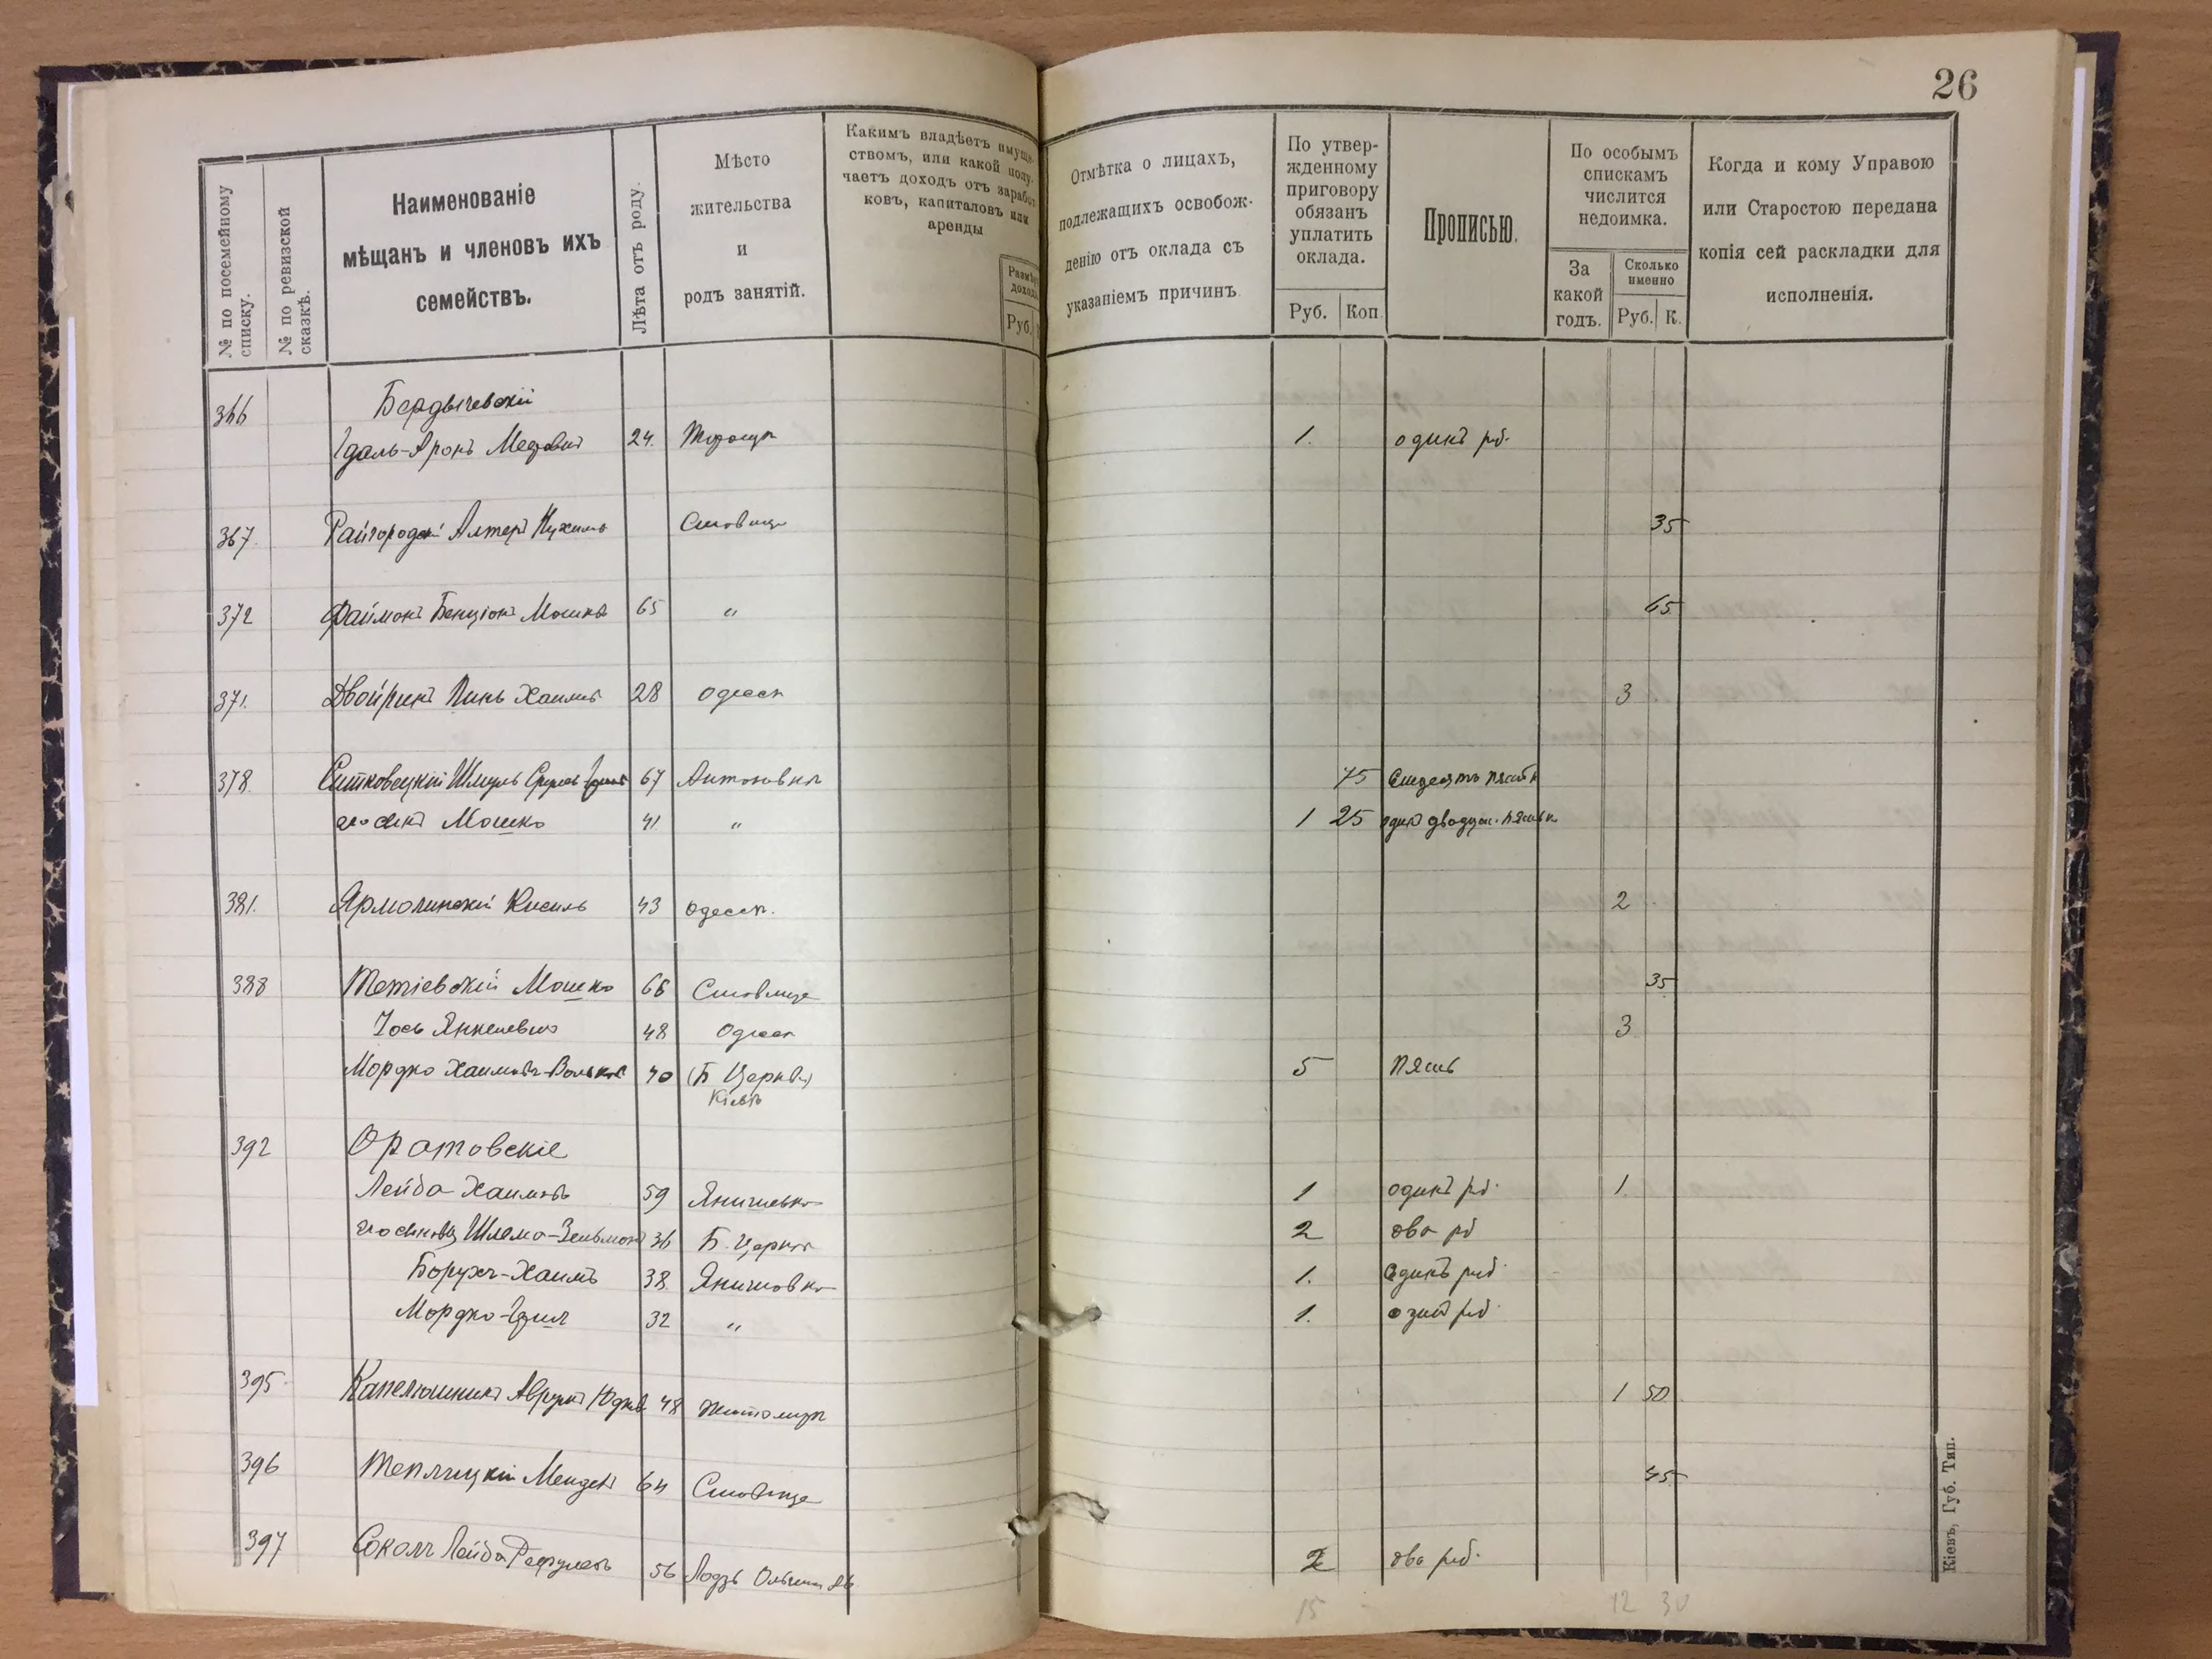 26
№ по посемейному списку.
№ по ревизской сказкѣ.
Наименованіе
мѣщанъ и членовъ ихъ
семействъ.
Лѣта отъ роду.
Мѣсто
жительства
и
родъ занятій.
Какимъ владѣетъ имуще-
ствомъ, или какой полу-
чаетъ доходъ отъ заработ
ковъ, капиталовъ или
аренды
Размѣръ
дохода
Руб.
Отмѣтка о лицахъ,
подлежащихъ освобож-
денію отъ оклада съ
указаніемъ причинъ
По утвер-
жденному
приговору
обязанъ
уплатить
оклада.
Руб. Коп.
Прописью.
По особымъ
спискамъ
числится
недоимка.
За
какой
годъ.
Сколько
именно
Руб. К.
Когда и кому Управою
или Старостою передана
копія сей раскладки для
исполненія.
366 Бердычевскій
Аронъ 24. 1. одинъ рб.
367. Райгородскій Алтеръ 35
372 Файманъ Бенціонъ Мошковъ 65 " 65
371. Двойринъ Пинь Хаимовъ 28 Одесса 3
378. Ситковецкій Шмуль 67 Антоновка 75
его сынъ Мошко 41 " 1 25 одинъ двадцат. пять к
381. Ярмолинскій Кисиль 43 Одесса. 2
388 Тетіевскій Мошко 66 Ставище 35
Іось Янкелевъ 48 Одесса 3
Мордко Хаимовъ-Вольковъ 40 (Б Церковь) 5 пять
Кіевъ
392 Оратовскіе
Лейба Хаимовъ 59 Янишевка 1 одинъ рб. 1.
его сыновья Шлема-Зельманъ 36 Б. Церковь 2 два рб
Борухъ-Хаимъ 38 Янишовка 1. одинъ руб
Мордко- 32 " 1. один рб.
395 Капелюшникъ Аврумъ Юдковъ 48 Житомиръ 1 50
396 Теплицкій Мендель 64 Ставище 45
397 Соколъ Лейба 56 Лодзь 2 два рб.
15 12 30
Кіевъ, Губ. Тип.